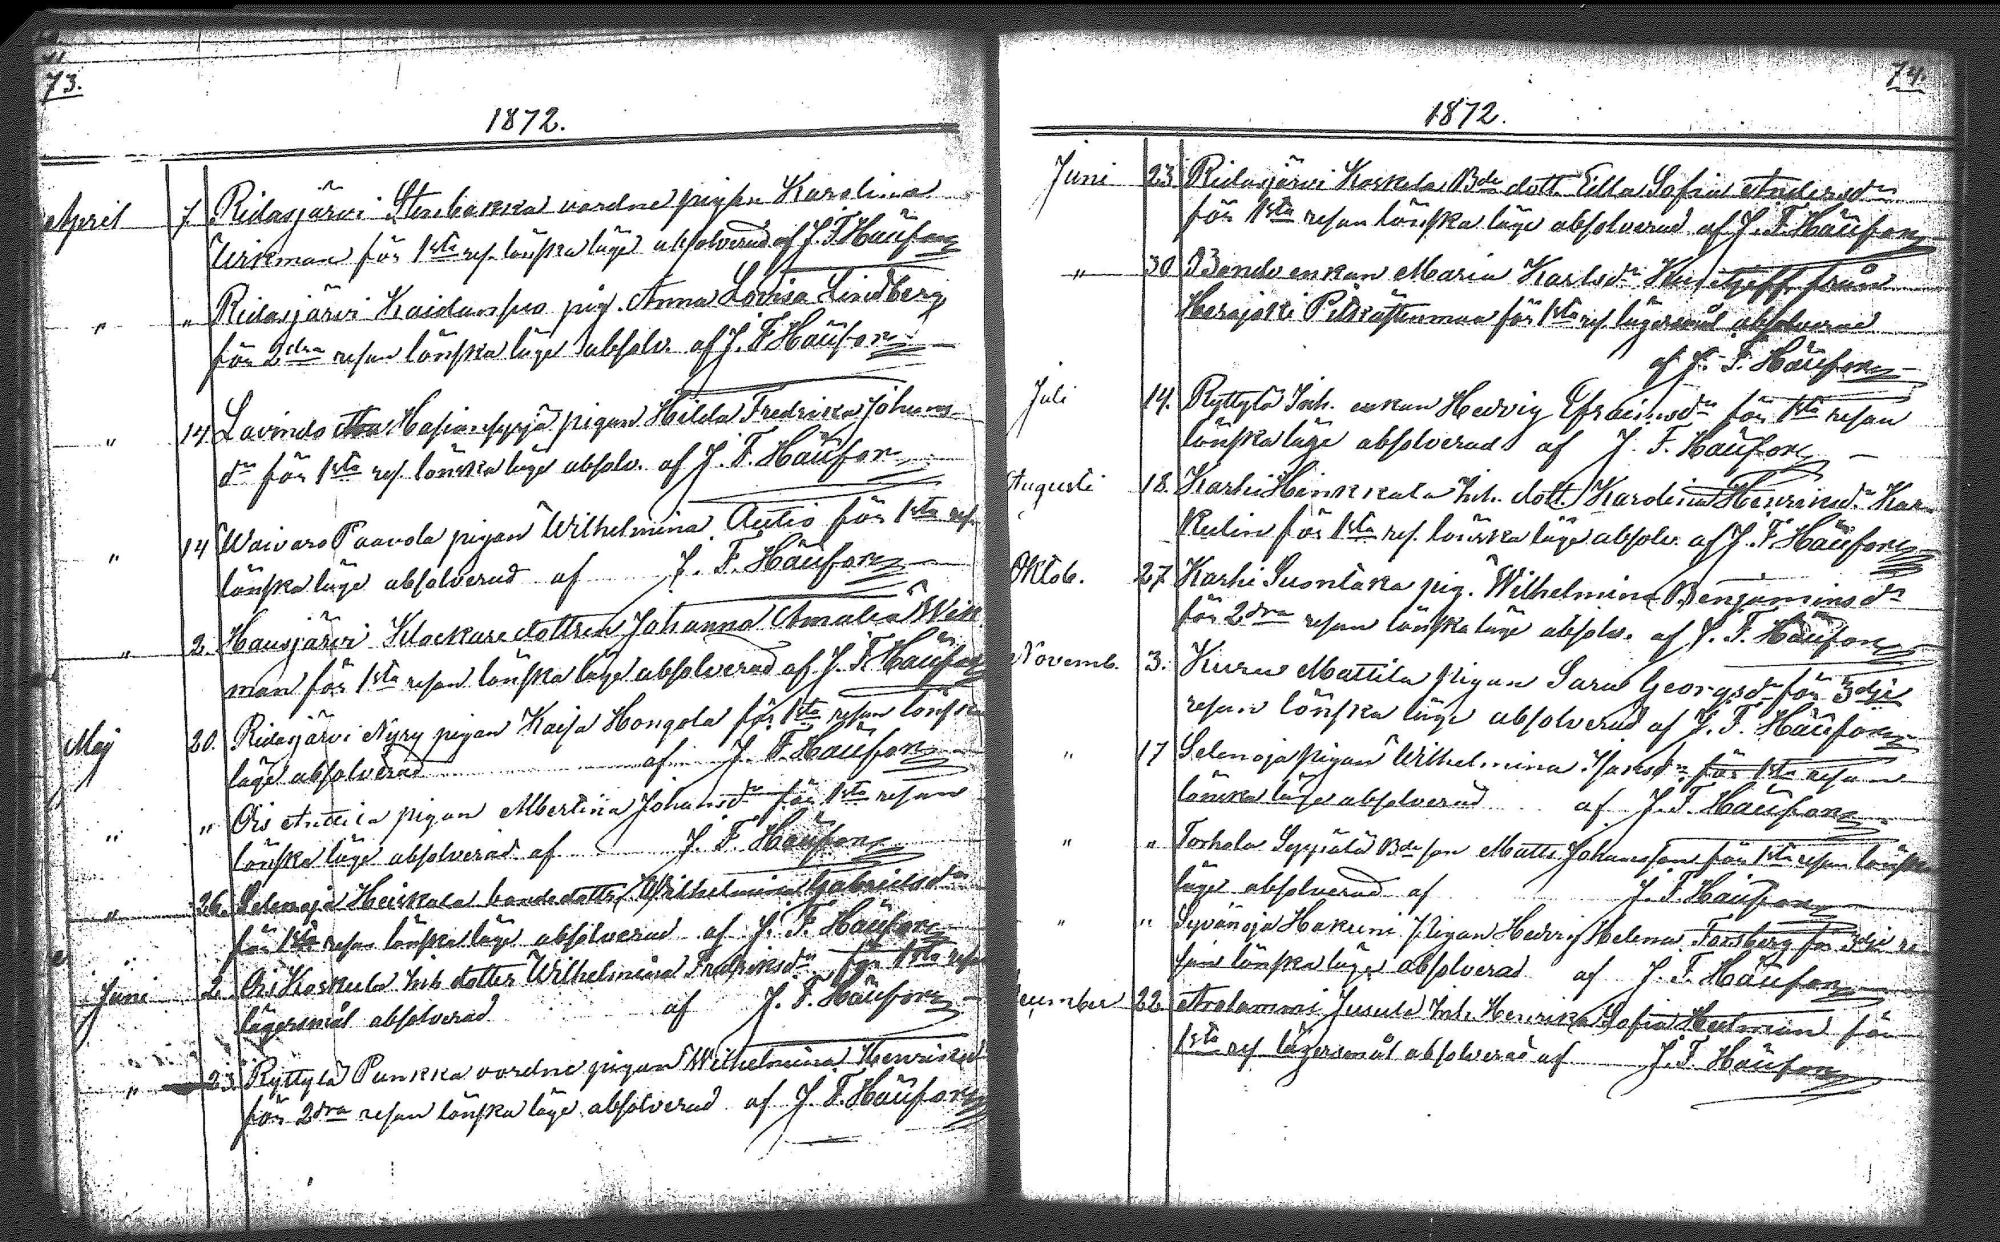 73.
1872.
April 7. Ridasjärvi Stenbakka vordne pigan Karolina
Wirkman för 1sta res. lönskaläge absolverad af J. F. Häüfon
" " Ridasjärvi Kaidansuo pig. Anna Lovisa Lindberg
för 2dra resan lönskaläge absolv. af J. F. Häüfon
" 14. Lavinto Hasiansyrjä pigan Hilda Fredrika Johans
dr för 1sta res. lönskaläge absolv. af J. F. Häüfon
" 14 Waivaro Paavola pigan Wilhelmina Autio för 1sta res.
lönskaläge absolverad af J. F. Häüfon
" 2. Hausjärvi Klockaredottren Johanna Amalia Wik
man för 1sta resan lönskaläge absolverad af J. F. Häüfon
Maj 20. Ridasjärvi Nyry pigan Kaisa Hongola för 1sta resan lönska
läge absolverad af J. F. Häüfon
" " Ois Anttila pigan Albertina Johansdr för 1sta resan
lönskaläge absolverad af J. F. Häüfon
" 26. Selenoja Heikkala bondedottr Wilhelmina Gabrielsdr
för 1sta resan lönskaläge absolverad af J. F. Häüfon
Juni 2. Ois Koskula Inh. dotter Wilhelmina Fredriksdr för 1sta resan
lägersmål absolverad af J. F. Häüfon
" 23. Ryttylä Punkka vordne pigan Wilhelmina Henriksd
för 2dra resan lönskaläge absolverad af J. F. Häüfon
74.
1872.
Juni 23 Ridasjärvi Koskela Bde dott. Edla Sofia Andersdr
för 1sta resan lönskaläge absolverad af J. F. Häüfon
" 30 Bondeenkan Maria Karlsdr från
Herajoki för 1sta res. lägersmål absolverad
af J. F. Häüfon
Juli 14. Ryttylä Inh. enkan Hedvig Efraimsdr för 1sta resan
lönskaläge absolverad af J. F. Häüfon
Augusti 18. Karhi Hinkkala Inh. dott. Karolina Henriksdr Kar
kulin för 1sta res. lönskaläge absolv. af J. F. Häüfon
Oktob. 27 Karhi Suontaka pig. Wilhelmina Benjaminsdr
för 2dra resan lönskaläge absolv. af J. F. Häüfon
Novemb. 3. Kuru Mattila Pigan Sara Georgsdr för 3dje
resan lönskaläge absolverad af J. F. Häüfon
" 17 Selenoja Pigan Wilhelmina Isaksdr för 1sta resan
lönskaläge absolverad af J. F. Häüfon
" " Torhola Syrjälä Bde son Matts Johansson för 1sta resan lönska
läge absolverad af J. F. Häüfon
" " Syvänoja Hakuni Pigan Hedvig Helena Forsberg för 3dje re
san lönskaläge absolverad af J. F. Häüfon
cember 22. Arolammi Jusula Inh. Henrika Sofia Hulman för
1sta res. lägersmål absolverad af J. F. Häüfon